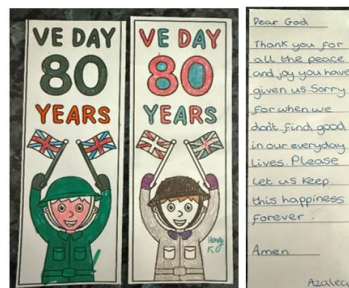 VE DAY
80
YEARS
VE DAY
80
YEARS
Henry
K
Dear God
Thank you for
all the peace
and joy you have
given us. Sorry
for when we
don't find good
in our everyday
lives. Please
let us keep
this happiness
forever.
Amen
Azalea